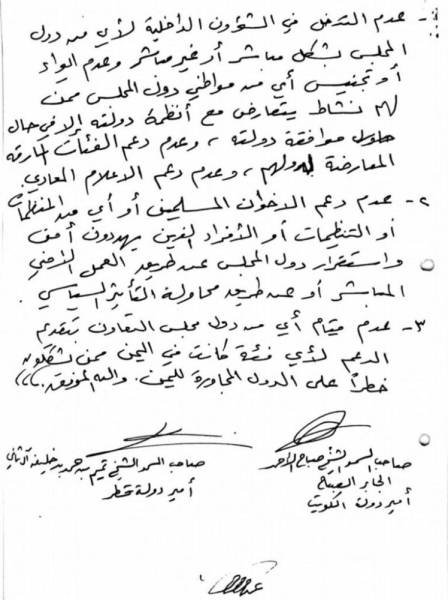 ١- عدم التدخل في الشؤون الداخلية لأي من دول
المجلس بشكل مباشر أو غير مباشر وعدم إيواء
أو تجنيس أي من مواطني دول المجلس ممن
لهم نشاط يتعارض مع أنظمة دولته إلا في حال
موافقة دولته ، وعدم دعم الفئات المارقة
المعارضة لدولهم ، وعدم دعم الاعلام المعادي.
٢- عدم دعم الاخوان المسلمين أو أي من المنظمات
أو التنظيمات أو الأفراد الذين يهددون أمن
واستقرار دول المجلس عن طريق العمل الأمني
المباشر أو عن طريق محاولة التأثير السياسي.
٣- عدم قيام أي من دول مجلس التعاون بتقديم
الدعم لأي فئة كانت في اليمن ممن يشكلون
خطراً على الدول المجاورة لليمن. والله الموفق،،،،
صاحب السمو الشيخ صباح الأحمد
الجابر الصباح
أمير دولة الكويت
صاحب السمو الشيخ تميم بن حمد بن خليفة آل ثاني
أمير دولة قطر